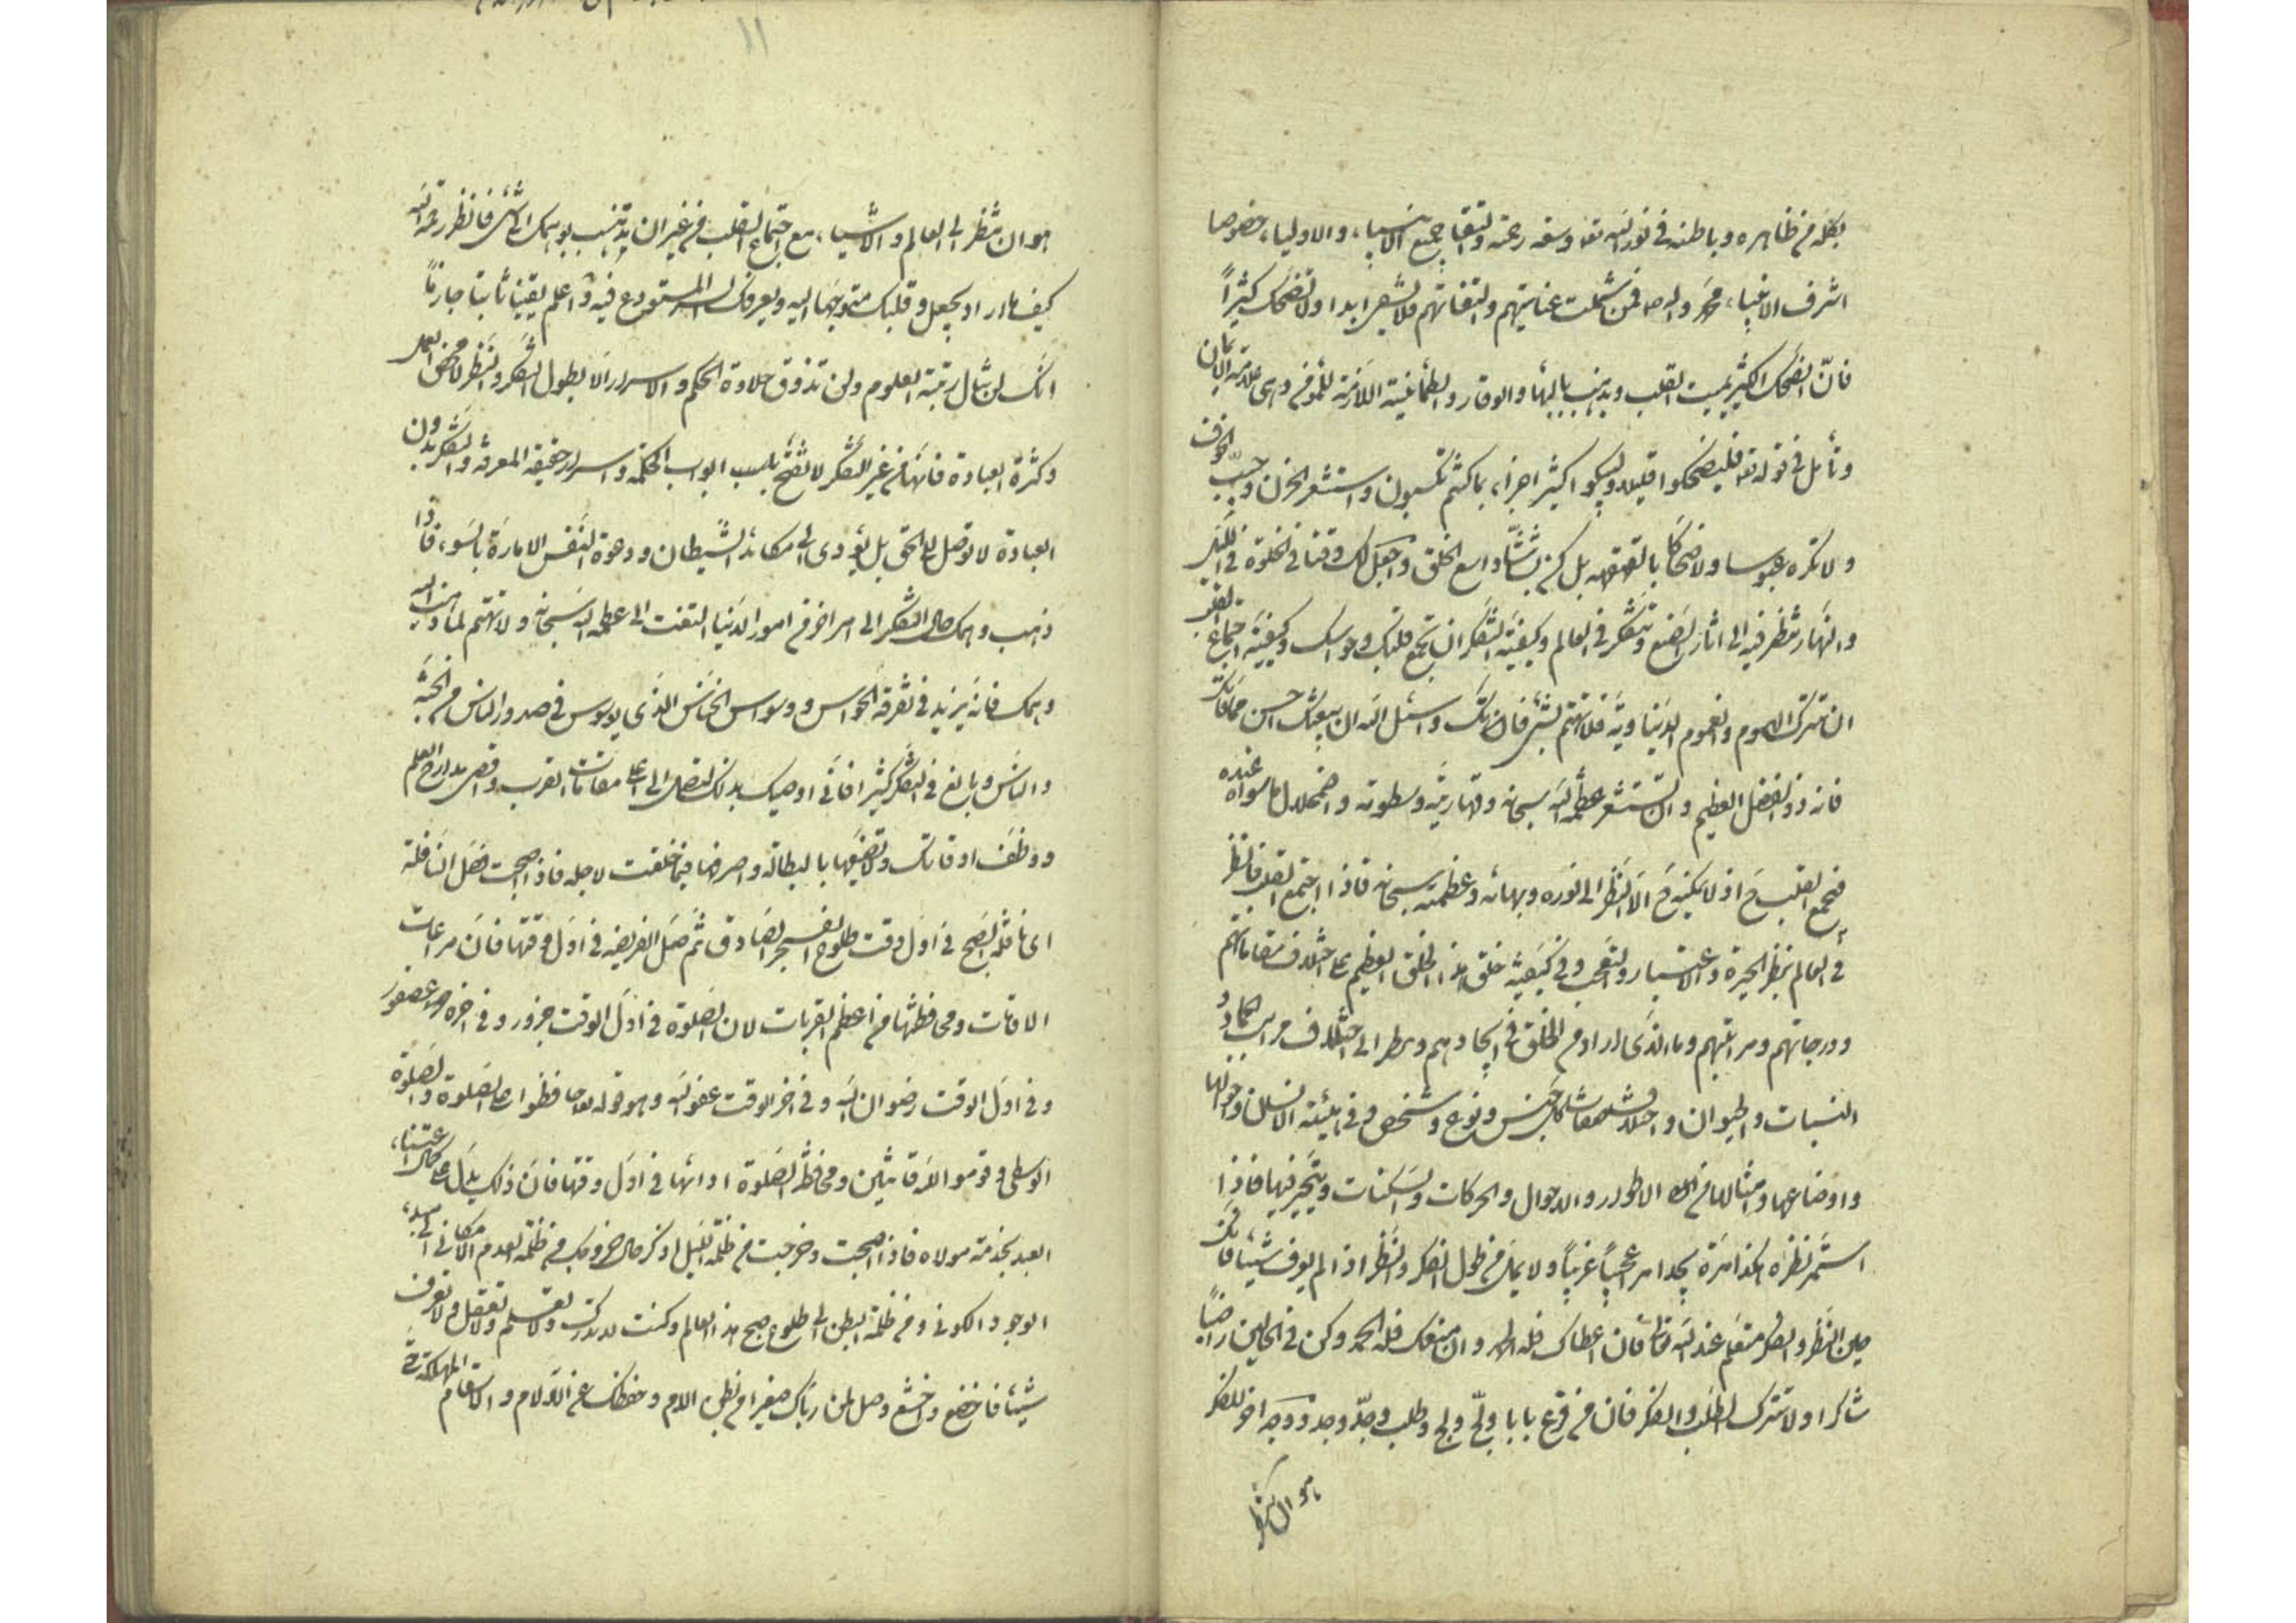 بكله من ظاهره وباطنه في نور الله تعالى وسعة رحمته والتفات جميع الانبياء والاولياء خصوصا
اشرف الانبياء محمد وآله ص فمن شملت عنايتهم والتفاتهم فلا يشقى ابدا ولا تضحك كثيراً
فانّ الضحك الكثير يميت القلب ويذهب بالبهاء والوقار والطمأنينة اللازمة للمؤمن وهي علامة الايمان
وتأمل في قوله تع فليضحكوا قليلا وليبكوا كثيرا جزاء بما كنتم تكسبون واستشعر الحزن وجلبب الخوف
ولا تكره عبوسا ولا ضحّاكا بالقهقهة بل كن بشّاشا واسع الخلق واجعل لك وقتا في الخلوة في الليل
والنهار تنظر فيه الى اثار الصنع وتتفكر في العالم وكيفية التفكر ان تجمع قلبك وحواسك وكيفية اجتماع القلب
ان تترك الهموم والغموم الدنياوية فلا تهتم بشئ فات منك واسئل الله ان يعوضك احسن مما فاتك
فانه ذو الفضل العظيم وان تستشعر عظمة الله سبحانه وقهاريته وسطوته واضمحلال ما سواه عنده
فيجمع القلب ح اذ لا يمكنه ح الا النظر الى نوره وبهائه وعظمته سبحانه فاذا اجتمع القلب فانظر
في العالم بنظر الحيرة والاعتبار والتعجب وفي كيفية خلق هذا الخلق العظيم على اختلاف مقاماتهم
ودرجاتهم ومراتبهم وما الذي اراد من الخلق في ايجادهم وينظر الى اختلاف مراتب الجماد و
النبات والحيوان واختلاف مقامات كل جنس ونوع وشخص وفي هيئة الانسان واحوالها
واوضاعها وامثالها من الاطوار والاحوال والحركات والسكنات ويتحير فيها فاذا
استمر نظره هكذا مرة يجد امرا عجيباً غريباً ولا يمل من طول الفكر والنظر اذا لم يعرف شيئا فانك
حين النظر والفكر متعلم عند الله تعالى فان اعطاك فله الحمد وان منعك فله الحمد وكن في الحالين راضياً
شاكرا ولا تترك الطلب والفكر فان من قرع بابا ولجّ ولج وطلب وجدّ وجد ووجه اخر للفكر
هو ان تنظر
١١
هو ان تنظر الى العالم والاشياء مع اجتماع القلب من غير ان يذهب وهمك الى شئ فانظر رحمة الله
كيف ما اراد يجعل وقلبك متوجها اليه ويعرفك السر المستودع فيه واعلم يقينا ثابتا جازماً
انك لن تنال رتبة العلوم ولن تذوق حلاوة الحكم والاسرار الا بطول الفكر والنظر لا بمحض العمل
وكثرة العبادة فانها من غير التفكر لا تفتح بسبب ابواب الحكمة واسرار حقيقة المعرفة والتفكر بدون
العبادة لا توصل الى الحق بل يؤدي الى مكائد الشيطان ودعوة النفس الامارة بالسوء فاذا
ذهب وهمك حال التفكر الى امر اخر من امور الدنيا التفت الى عظمة الله سبحانه ولا تهتم لما ذهب اليه
وهمك فانه يزيد في تفرقة الحواس ووسواس الخناس الذي يوسوس في صدور الناس من الجنة
والناس وبالغ في التفكر كثيرا فاني اوصيك بذلك لتصل الى اعلى مقامات القرب واقصى مدارج العلم
ووظف اوقاتك ولا تضيعها بالبطالة واصرفها فيما خلقت لاجله فاذا اصبحت فصل النافلة
اي نافلة الصبح في اول وقت طلوع الفجر الصادق ثم صل الفريضة في اول وقتها فان مراعات
الاوقات ومحافظتها من اعظم القربات لان الصلوة في اول الوقت جزور وفي اخره عصفور
وفي اول الوقت رضوان الله وفي اخر الوقت عفو الله وهو قوله تعالى حافظوا على الصلوة والصلوة
الوسطى وقوموا لله قانتين ومحافظة الصلوة ادائها في اول وقتها فان ذلك يدل على كمال اعتناء
العبد بخدمة مولاه فاذا اصبحت وخرجت من ظلمة الليل اذكر حال خروجك من ظلمة العدم الامكاني الى مبدء
الوجود الكوني ومن ظلمة البطن الى طلوع صبح هذا العالم وكنت لا تدرك ولا تعلم ولا تعقل ولا تعرف
شيئا فاخضع واخشع وصل لمن رباك صغيرا في بطن الام وحفظك عن الآلام والاسقام المهلكة حتى